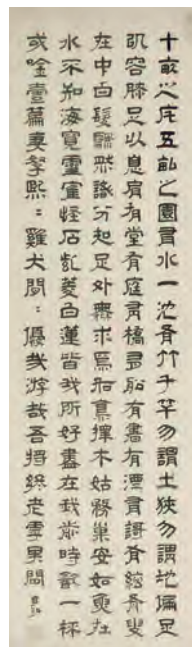 十畝之宅五畝之園有水一池有竹千竿勿謂土狹勿謂地偏足
以容膝足以息肩有堂有庭有橋有船有書有酒有謌有絃有叟
在中白髮飄然識分知足外無求焉如鳥擇木姑務巢安如魚在
水不知海寬靈隺怪石紫菱白蓮皆我所好盡在我前時飲一杯
或唫壹篇妻孥熙〻雞犬閒〻優哉游哉吾將終老乎其間